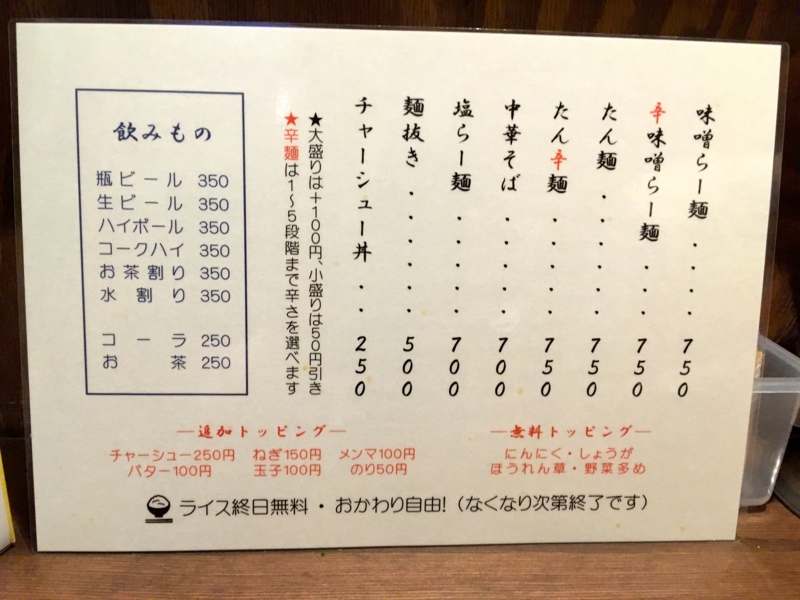 味噌らー麺・・・・750
辛味噌らー麺・・・750
たん麺・・・・・・750
たん辛麺・・・・・750
中華そば・・・・・700
塩らー麺・・・・・700
麺抜き・・・・・・500
チャーシュー丼・・250
★大盛りは+100円、小盛りは50円引き
★辛麺は1〜5段階まで辛さを選べます
飲みもの
瓶ビール 350
生ビール 350
ハイボール 350
コークハイ 350
お茶割り 350
水割り 350
コーラ 250
お茶 250
―追加トッピング―
チャーシュー250円 ねぎ150円 メンマ100円
バター100円 玉子100円 のり50円
―無料トッピング―
にんにく・しょうが
ほうれん草・野菜多め
ライス終日無料・おかわり自由!(なくなり次第終了です)